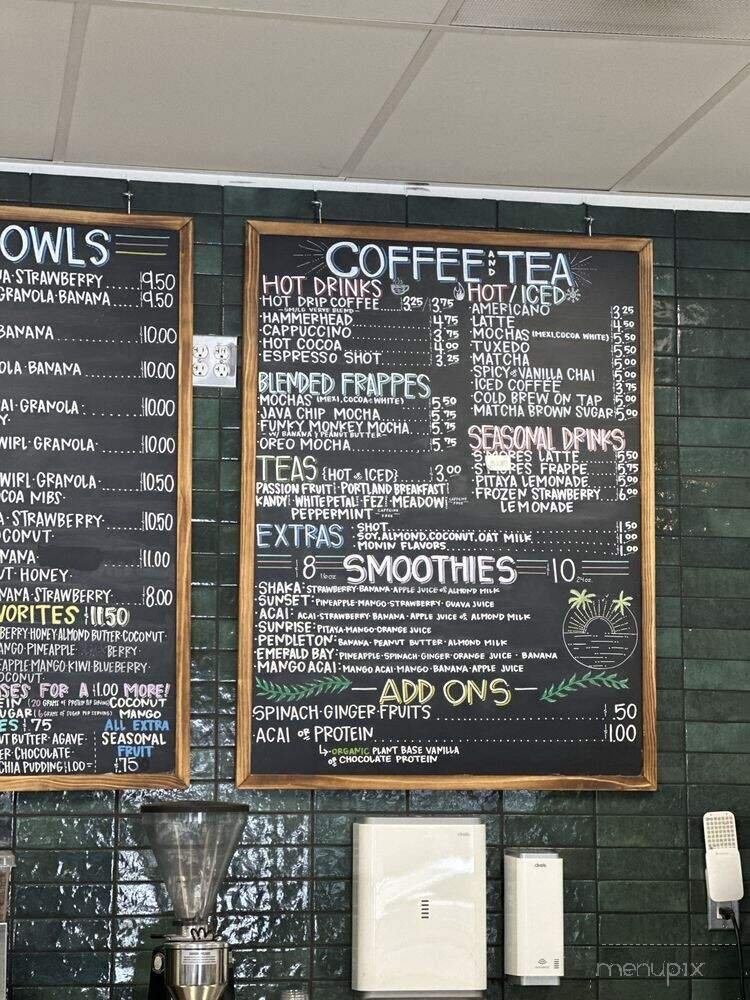 OWLS
A·STRAWBERRY 9.50
GRANOLA·BANANA 9.50
BANANA 10.00
OLA BANANA 10.00
AI·GRANOLA 10.00
Y·
WIRL·GRANOLA· 10.00
WIRL·GRANOLA 10.50
COA NIBS·
A·STRAWBERRY 10.50
CONUT·
NANA 11.00
UT·HONEY·
NANA·STRAWBERRY 8.00
VORITES 11.50
BERRY HONEY ALMOND BUTTER·COCONUT·
ANGO·PINEAPPLE BERRY
EAPPLE MANGO·KIWI BLUEBERRY·
OCONUT·
SES FOR A 1.00 MORE!
COCONUT
MANGO
ES .75 ALL EXTRA
UT BUTTER·AGAVE· SEASONAL
ER·CHOCOLATE· FRUIT
CHIA PUDDING 1.00 .75
COFFEE AND TEA
HOT DRINKS
HOT DRIP COFFEE 3.25/3.75
SM/LG VERVE BLEND
HAMMERHEAD 4.75
CAPPUCCINO 3.75
HOT COCOA 4.00
ESPRESSO SHOT 3.25
BLENDED FRAPPES
MOCHAS (MEXI, COCOA or WHITE) 5.50
JAVA CHIP MOCHA 5.75
FUNKY MONKEY MOCHA 5.75
W/ BANANA & PEANUT BUTTER
OREO MOCHA 5.75
TEAS {HOT or ICED} 3.00
PASSION FRUIT PORTLAND BREAKFAST
KANDY WHITE PETAL FEZ MEADOW CAFFEINE FREE
PEPPERMINT CAFFEINE FREE
HOT/ICED
AMERICANO 3.25
LATTE 4.50
MOCHAS (MEXI, COCOA WHITE) 5.50
TUXEDO 5.50
MATCHA
SPICY or VANILLA CHAI 5.00
ICED COFFEE 3.75
COLD BREW ON TAP 5.00
MATCHA BROWN SUGAR 5.00
SEASONAL DRINKS
S'MORES LATTE 5.50
S'MORES FRAPPE 5.75
PITAYA LEMONADE 5.00
FROZEN STRAWBERRY 6.00
LEMONADE
EXTRAS
SHOT 1.50
SOY, ALMOND, COCONUT, OAT MILK 1.00
MONIN FLAVORS 1.00
8 16oz SMOOTHIES 10 24oz
SHAKA: STRAWBERRY·BANANA·APPLE JUICE or ALMOND MILK
SUNSET: PINEAPPLE·MANGO·STRAWBERRY·GUAVA JUICE
ACAI: ACAI·STRAWBERRY·BANANA·APPLE JUICE or ALMOND MILK
SUNRISE: PITAYA·MANGO·ORANGE JUICE
PENDLETON: BANANA·PEANUT BUTTER·ALMOND MILK
EMERALD BAY: PINEAPPLE·SPINACH·GINGER·ORANGE JUICE·BANANA
MANGO ACAI: MANGO·ACAI·MANGO·BANANA·APPLE JUICE
ADD ONS
SPINACH·GINGER·FRUITS .50
ACAI or PROTEIN 1.00
ORGANIC PLANT BASE VANILLA
or CHOCOLATE PROTEIN
menupix